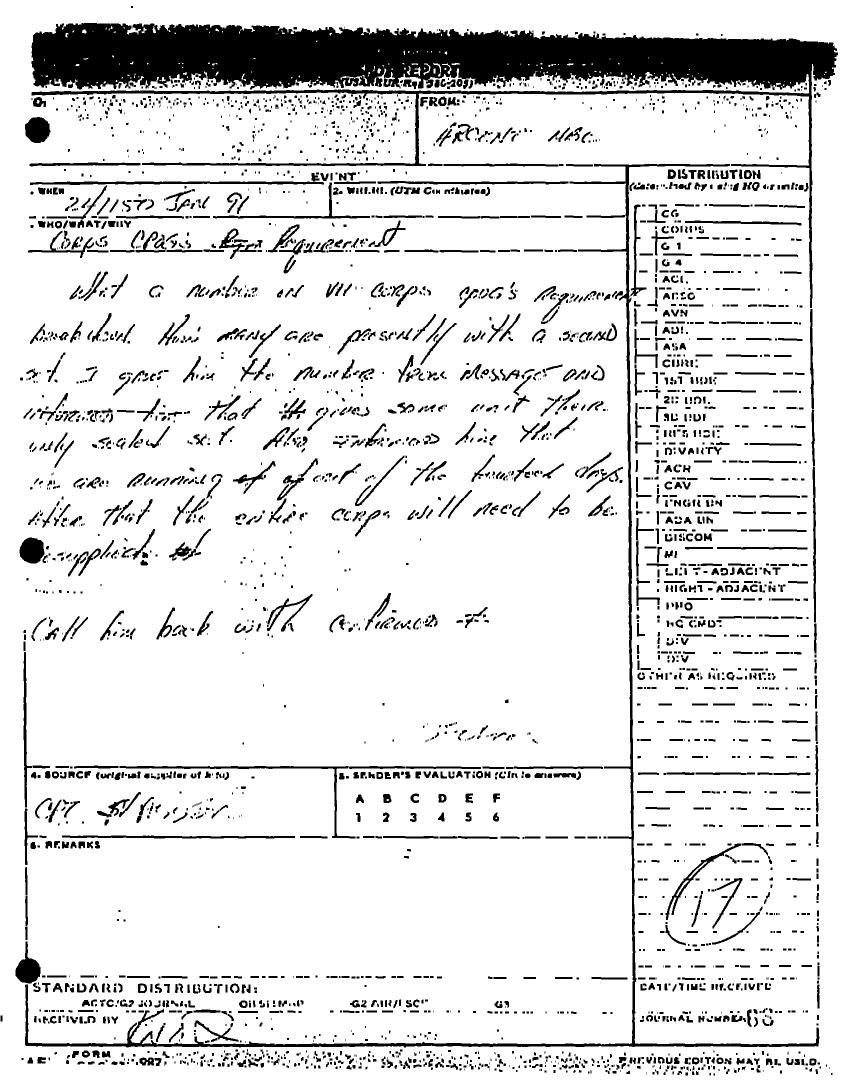 SPOT REPORT
O:
FROM:
ARCENT NBC
EVENT
DISTRIBUTION
1. WHEN
24/1150 JAN 91
2. WHERE. (UTM Coordinates)
(determined by using HQ or units)
WHO/WHAT/WHY
CORPS CPOG's Requirement
What a number on VII Corps CPOG's Requirement
breakdown. How many are presently with a second
set. I gave him the number from message and
informed him that it gives some unit their
only sealed set. Also, informed him that
we are running out of the fourteen days.
After that the entire corps will need to be
resupplied.
Call him back with confirmed #
CG
CORPS
G 1
G 4
AVN
ASA
1ST BDE
2D BDE
3D BDE
RES BDE
DIVARTY
ACR
CAV
ENGR BN
ADA BN
DISCOM
MI
LEFT - ADJACENT
RIGHT - ADJACENT
PMO
HQ CMDT
DIV
DIV
OTHER AS REQUIRED
4. SOURCE (original supplier of info)
CPT
5. SENDER'S EVALUATION (Circle answers)
A B C D E F
1 2 3 4 5 6
6. REMARKS
17
STANDARD DISTRIBUTION:
ACTC/G2 JOURNAL G2 AIR/FSC G3
RECEIVED BY
DATE/TIME RECEIVED
JOURNAL NUMBER 68
FORM
PREVIOUS EDITION MAY BE USED